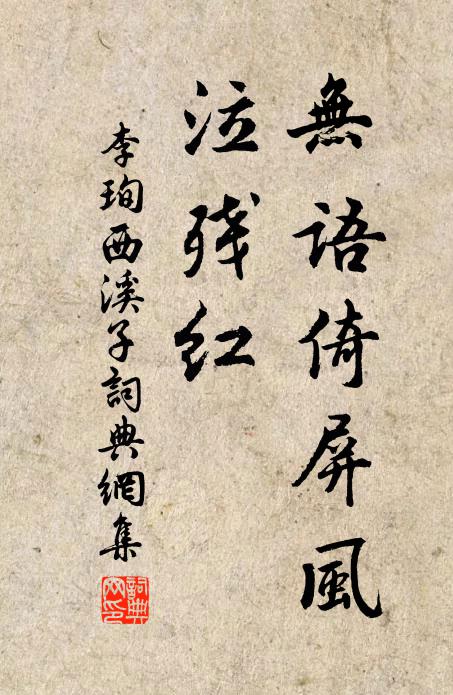 無語倚屏風
泣残紅
李珣西溪子詞典網集
詞典網印